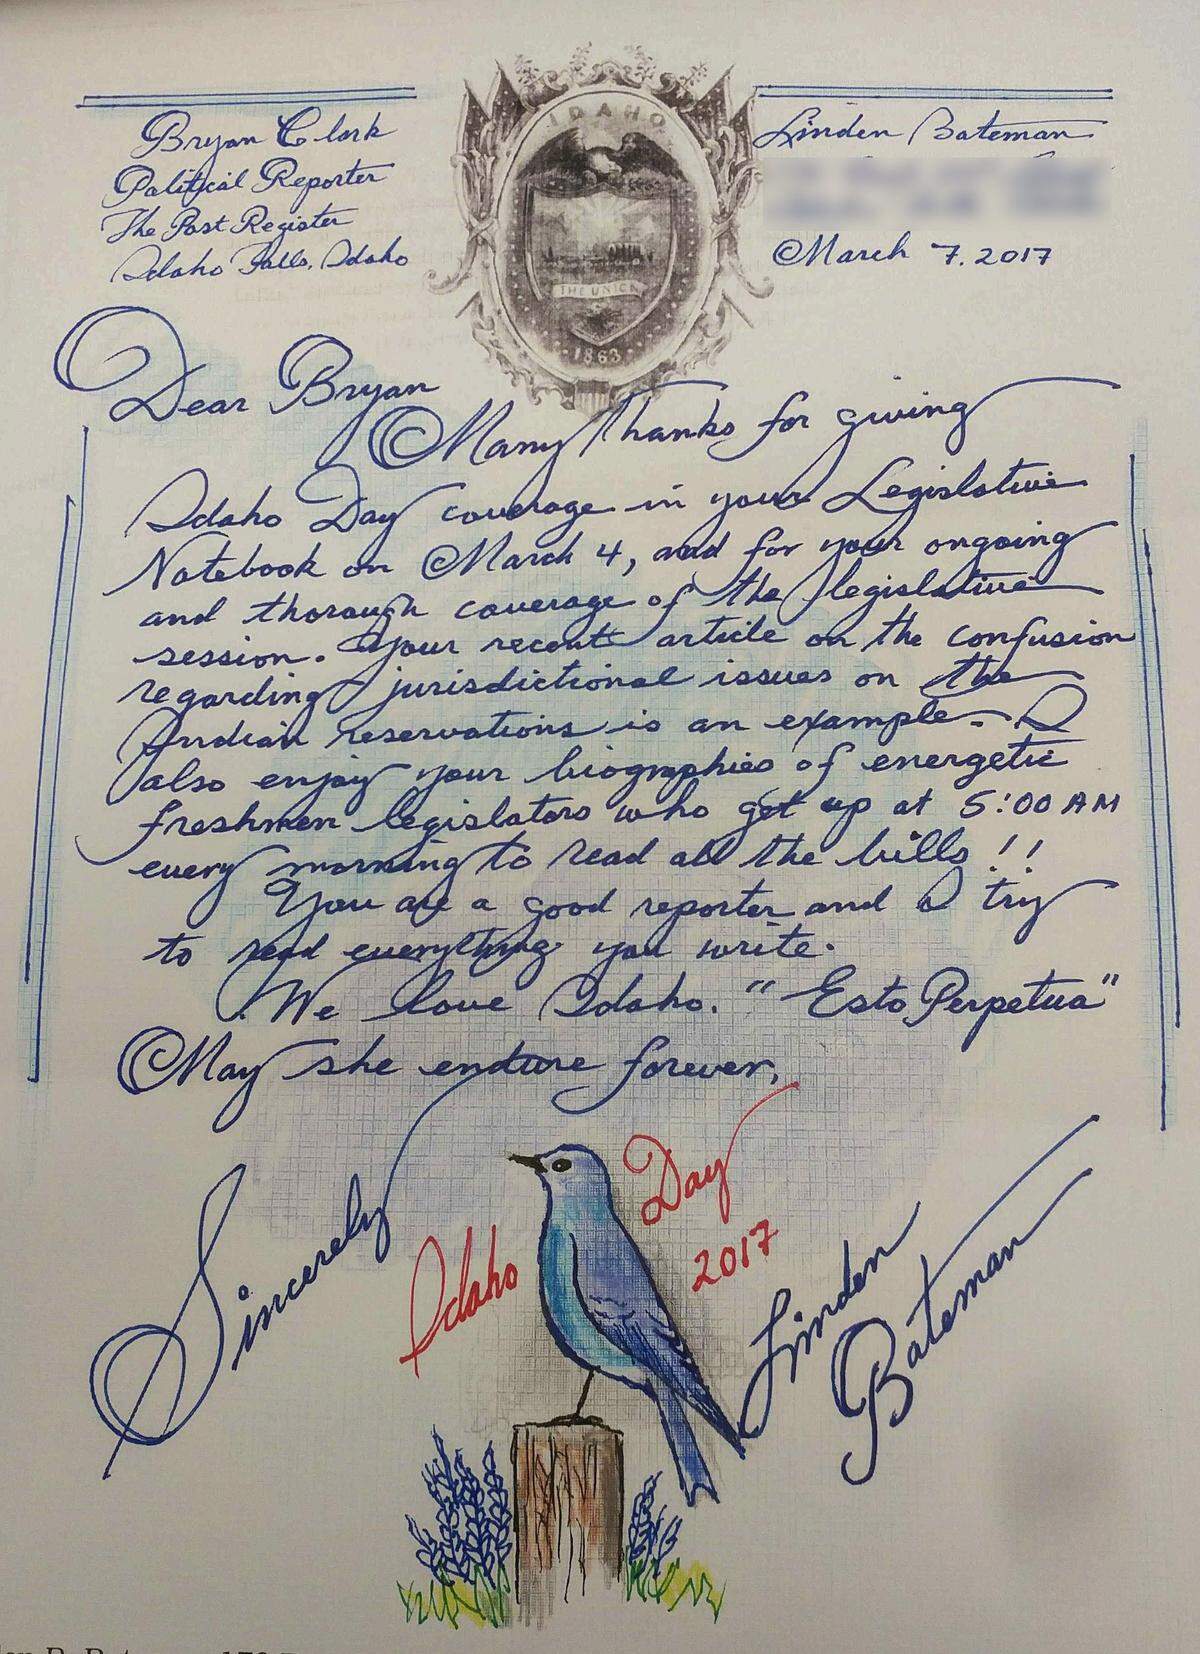 Bryan Clark
Political Reporter
The Post Register
Idaho Falls, Idaho
IDAHO
THE UNION
1863
Linden Bateman
March 7, 2017
Dear Bryan
Many Thanks for giving
Idaho Day coverage in your Legislative
Notebook on March 4, and for your ongoing
and thorough coverage of the legislative
session. Your recent article on the confusion
regarding jurisdictional issues on the
Indian reservations is an example. I
also enjoy your biographies of energetic
freshmen legislators who get up at 5:00 AM
every morning to read all the bills!!
You are a good reporter and I try
to read everything you write.
We love Idaho. "Esto Perpetua"
May she endure forever,
Sincerely
Idaho Day
2017
Linden
Bateman